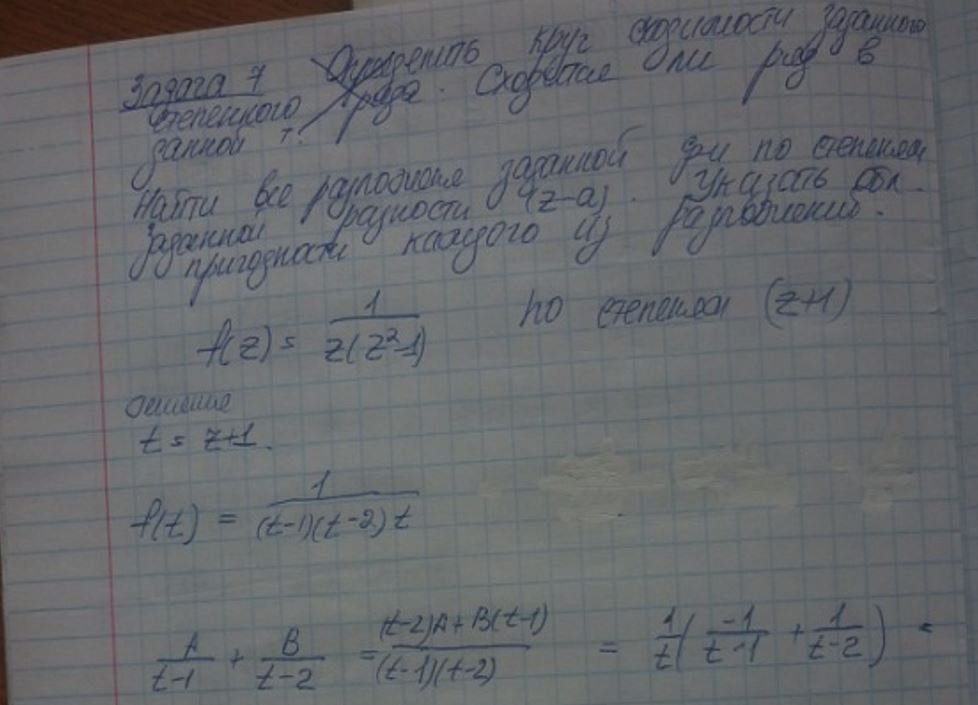 Задача 7 Определить круг сходимости заданного
степенного ряда. Сходится ли ряд в
данной т.
Найти все разложения заданной ф-и по степеням
заданной разности (z-a). Указать обл.
пригодности каждого из разложений.
f(z) = 1/(z(z²-1)) по степеням (z+1)
Решение
t = z+1.
f(t) = 1/((t-1)(t-2)t)
A/(t-1) + B/(t-2) = ((t-2)A+B(t-1))/((t-1)(t-2)) = 1/t(-1/(t-1) + 1/(t-2)) =